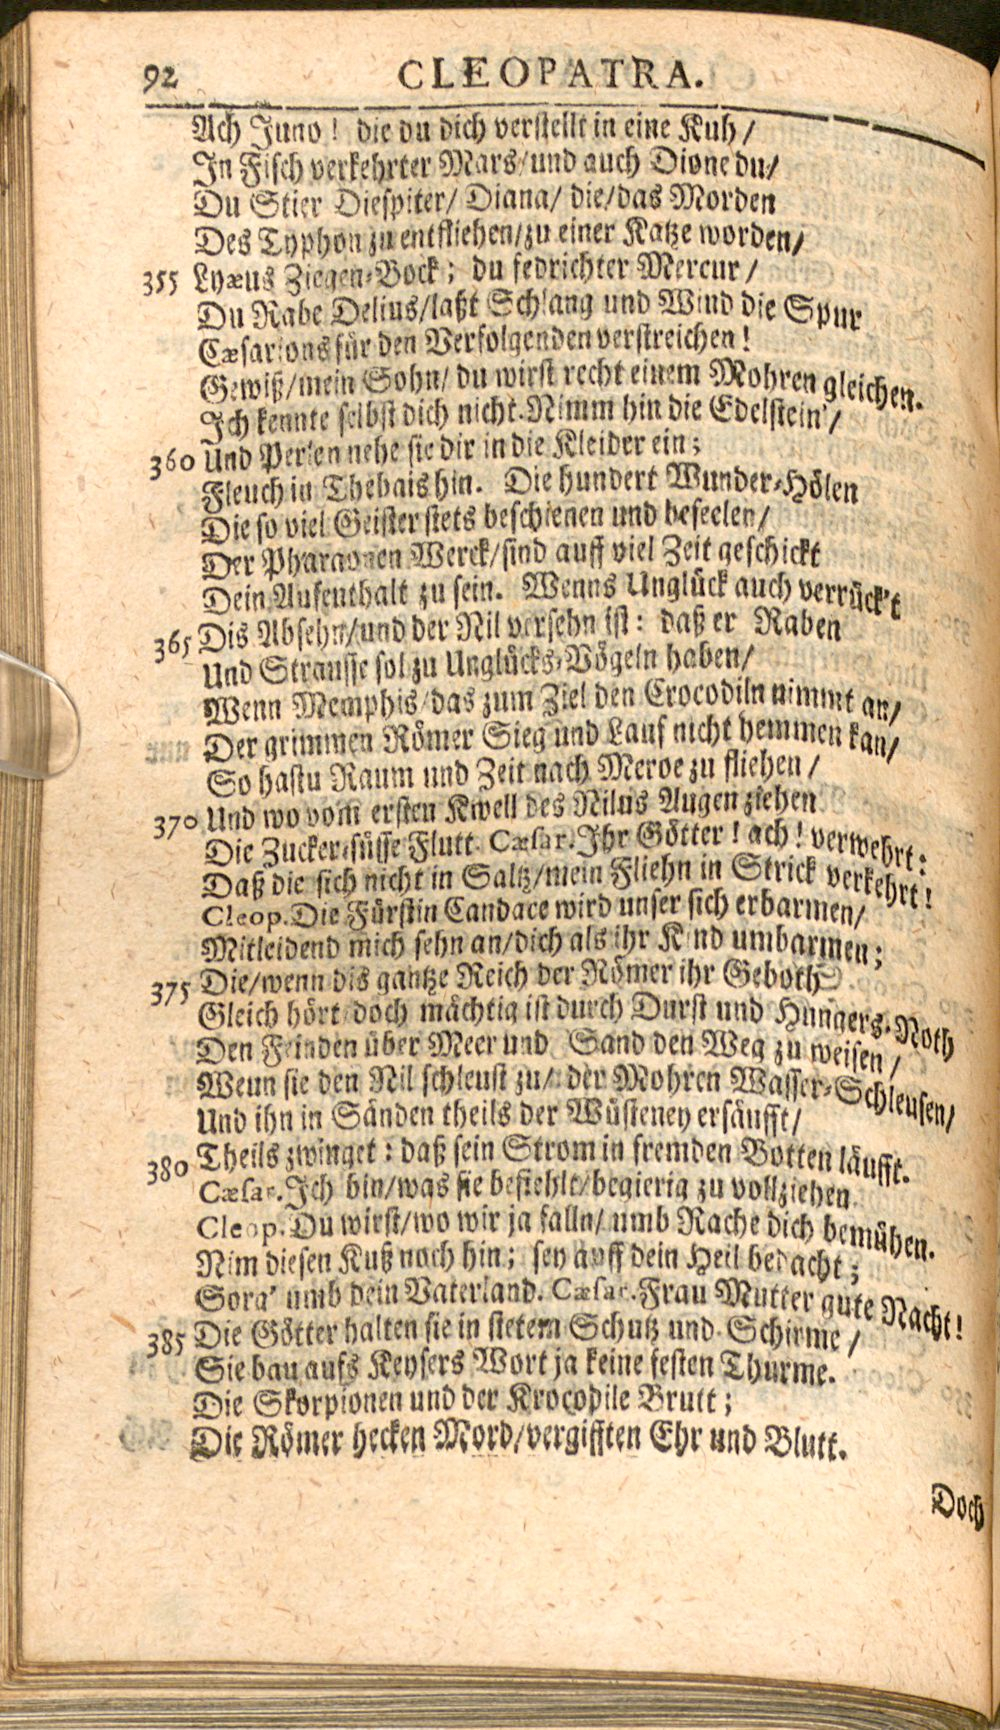 92 CLEOPATRA.
Ach Juno! die du dich verstellt in eine Kuh/
In Fisch verkehrter Mars/und auch Dione du/
Du Stier Diespiter/ Diana/ die/das Morden
Des Typhon zu entfliehen/zu einer Katze worden/
355 Lyæus Ziegen-Bock; du fedrichter Mercur/
Du Rabe Delius/laßt Schlang und Wind die Spur
Cæsarions für den Verfolgenden verstreichen!
Gewiß/mein Sohn/ du wirst recht einem Mohren gleichen.
Ich kennte selbst dich nicht. Nimm hin die Edelstein'/
360 Und Perlen nehe sie dir in die Kleider ein;
Fleuch in Thebais hin. Die hundert Wunder-Hölen
Die so viel Geister stets beschienen und beseelen/
Der Pharaonen Werck/sind auff viel Zeit geschickt
Dein Aufenthalt zu sein. Wenns Unglück auch verrück't
365 Dis Absehn/und der Nil versehn ist: daß er Raben
Und Strausse sol zu Unglücks-Vögeln haben/
Wenn Memphis/das zum Ziel den Crocodiln nimmt an/
Der grimmen Römer Sieg und Lauf nicht hemmen kan/
So hastu Raum und Zeit nach Meroe zu fliehen/
370 Und wo vom ersten Kwell des Nilus Augen ziehen
Die Zucker-süsse Flutt. Cæsar. Ihr Götter! ach! verwehrt:
Daß die sich nicht in Saltz/mein Fliehn in Strick verkehrt!
Cleop. Die Fürstin Candace wird unser sich erbarmen/
Mitleidend mich sehn an/dich als ihr Kind umbarmen;
375 Die/wenn dis gantze Reich der Römer ihr Geboth
Gleich hört/doch mächtig ist durch Durst und Hungers-Noth
Den Feinden über Meer und Sand den Weg zu weisen/
Wenn sie den Nil schleust zu/ der Mohren Wasser-Schleusen/
Und ihn in Sänden theils der Wüsteney ersäufft/
380 Theils zwinget: daß sein Strom in fremden Botten läufft.
Cæsar. Ich bin/was sie befiehlt/begierig zu vollziehen.
Cleop. Du wirst/wo wir ja falln/ umb Rache dich bemühen.
Nim diesen Kuß noch hin; sey auff dein Heil bedacht;
Sorg' umb dein Vaterland. Cæsar. Frau Mutter gute Nacht!
385 Die Götter halten sie in stetem Schutz und Schirme/
Sie bau aufs Keysers Wort ja keine festen Thurme.
Die Skorpionen und der Krocodile Brutt;
Die Römer hecken Mord/vergifften Ehr und Blutt.
Doch